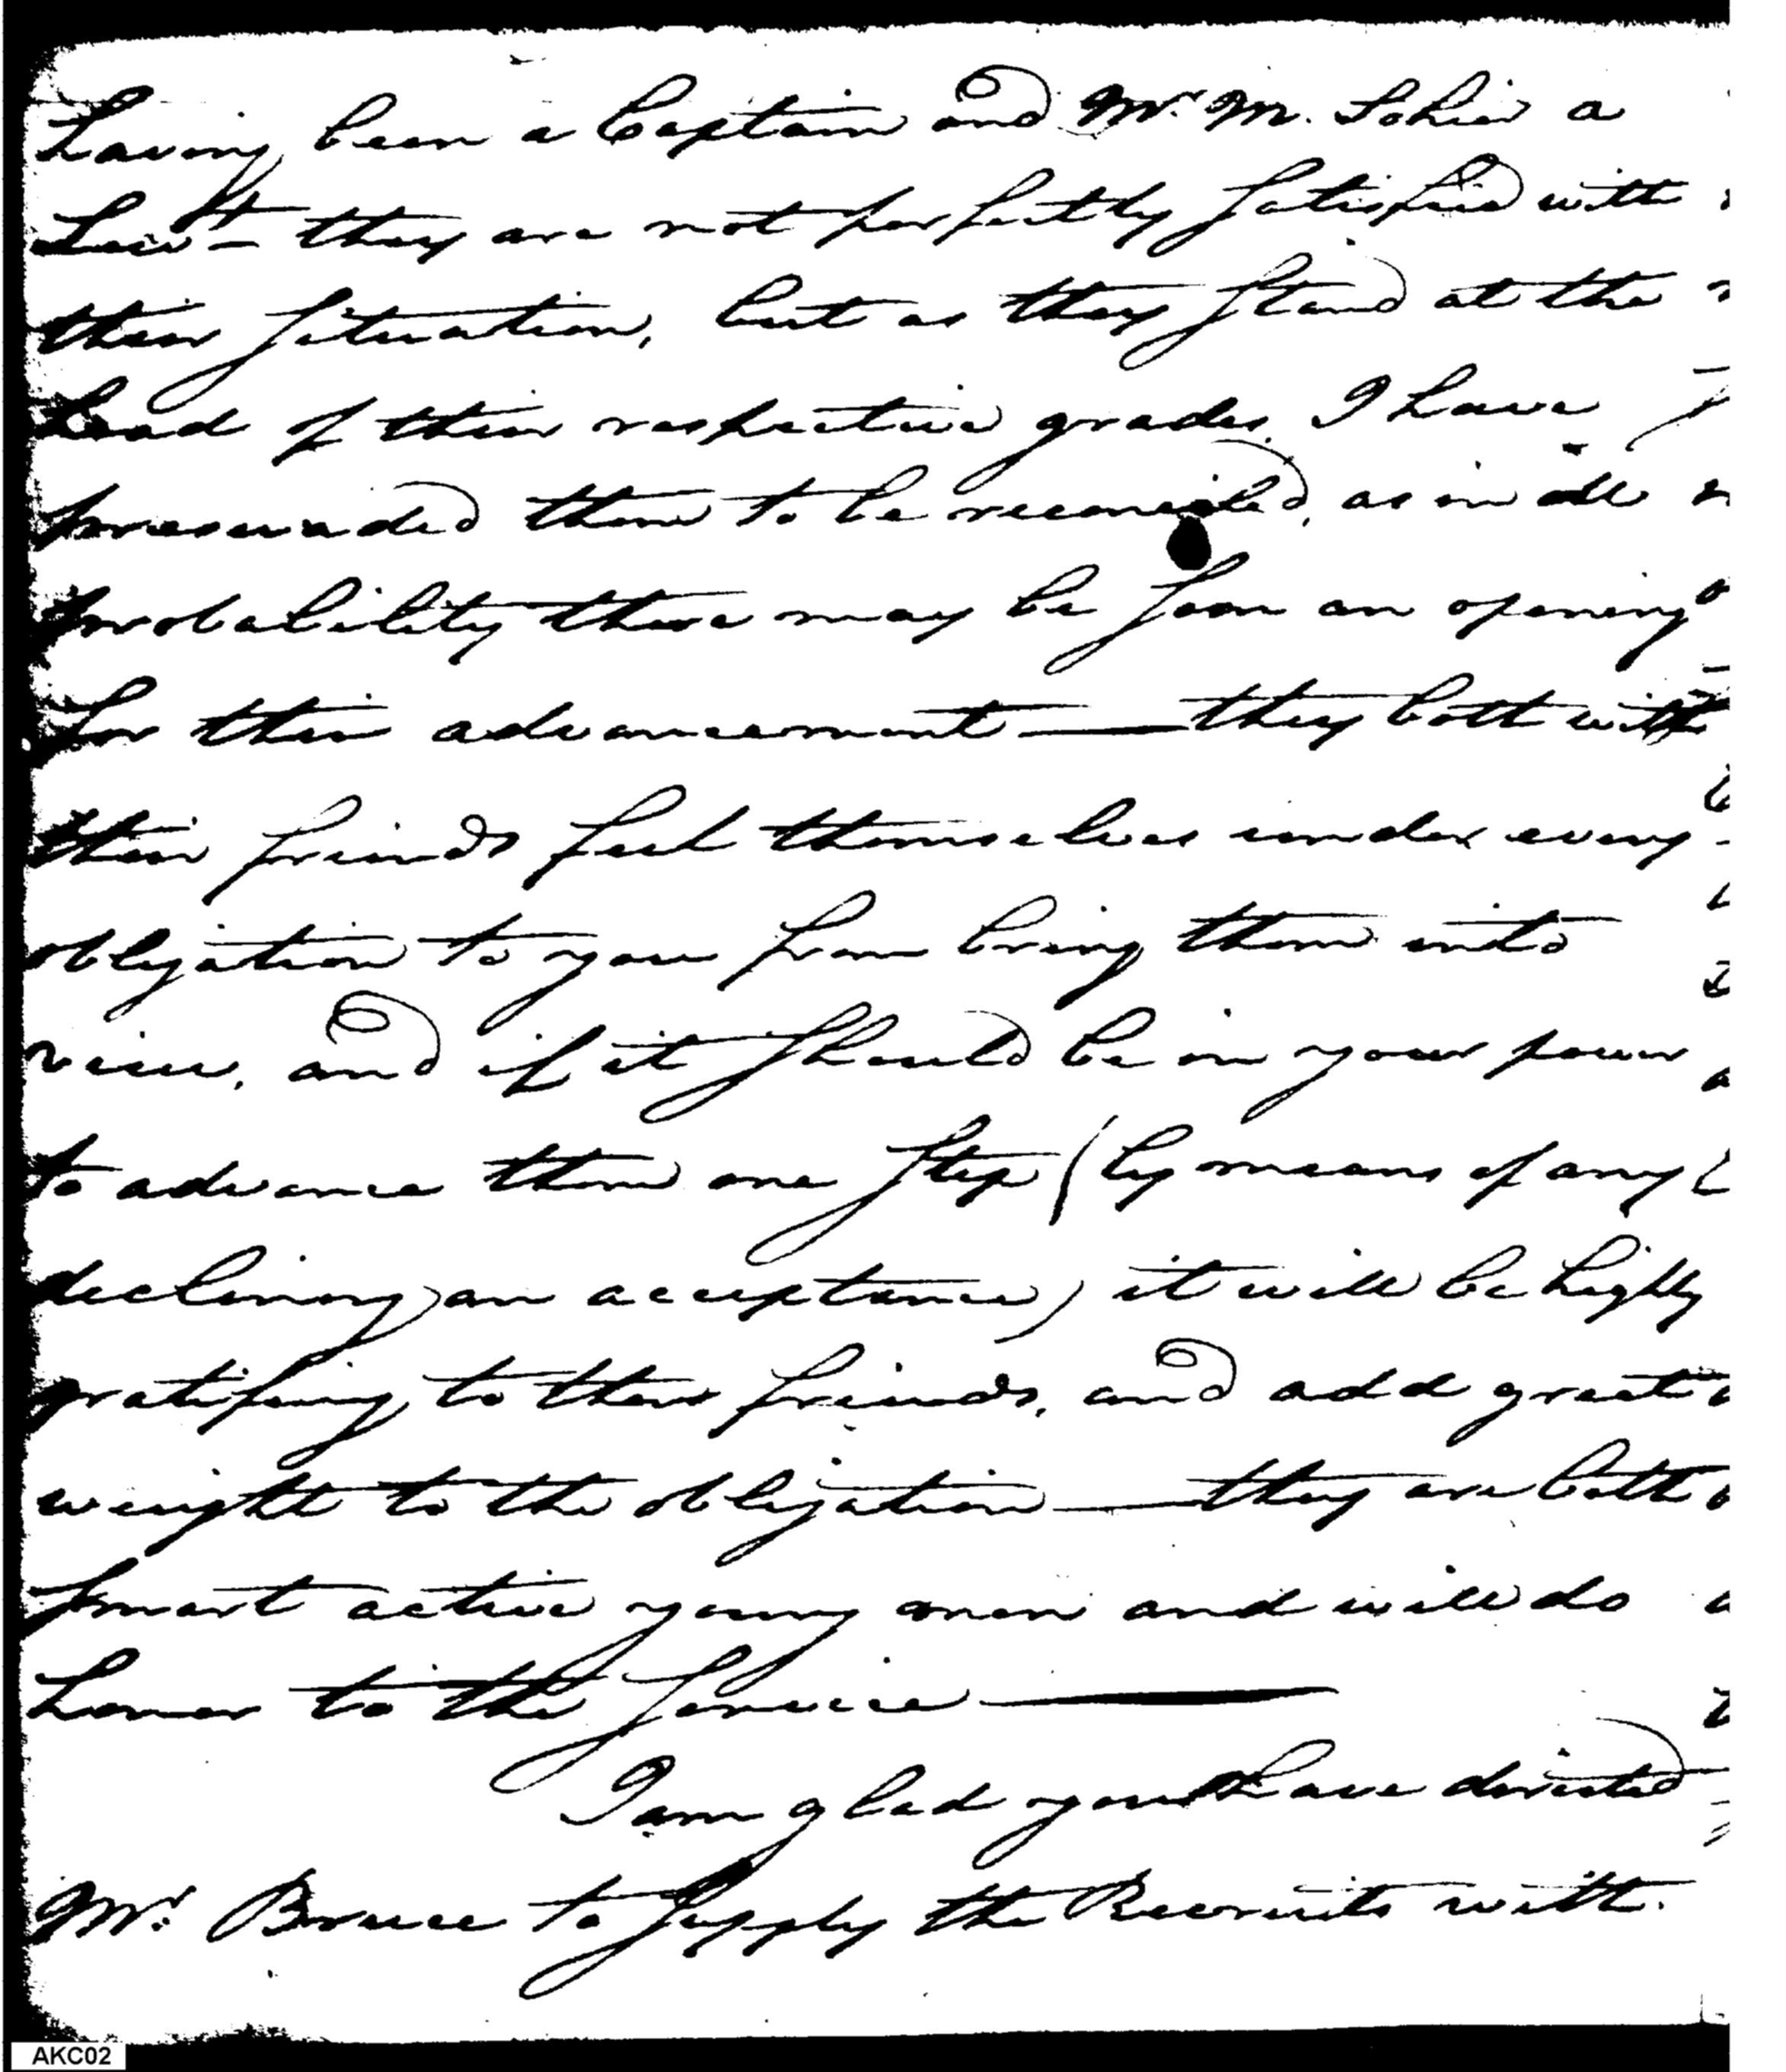 having been a Captain and Mr. M. Sohier a
Lieut— they are not perfectly satisfied with
their situation, but as they stand at the
head of their respective grades, I have
preswaded them to be reconciled, as in all
probability there may be soon an opening
for their advancement — they both with
their friends feel themselves under every
obligation to you from bring them into
view, and if it should be in your power
to advance them one step (by means of any
declining an acceptance) it will be highly
gratifying to their friends, and add great
weight to the obligation — they are both
smart active young men and will do
honor to the service —
I am glad you have directed
Mr. Bruce to supply the Recruits with
AKC02